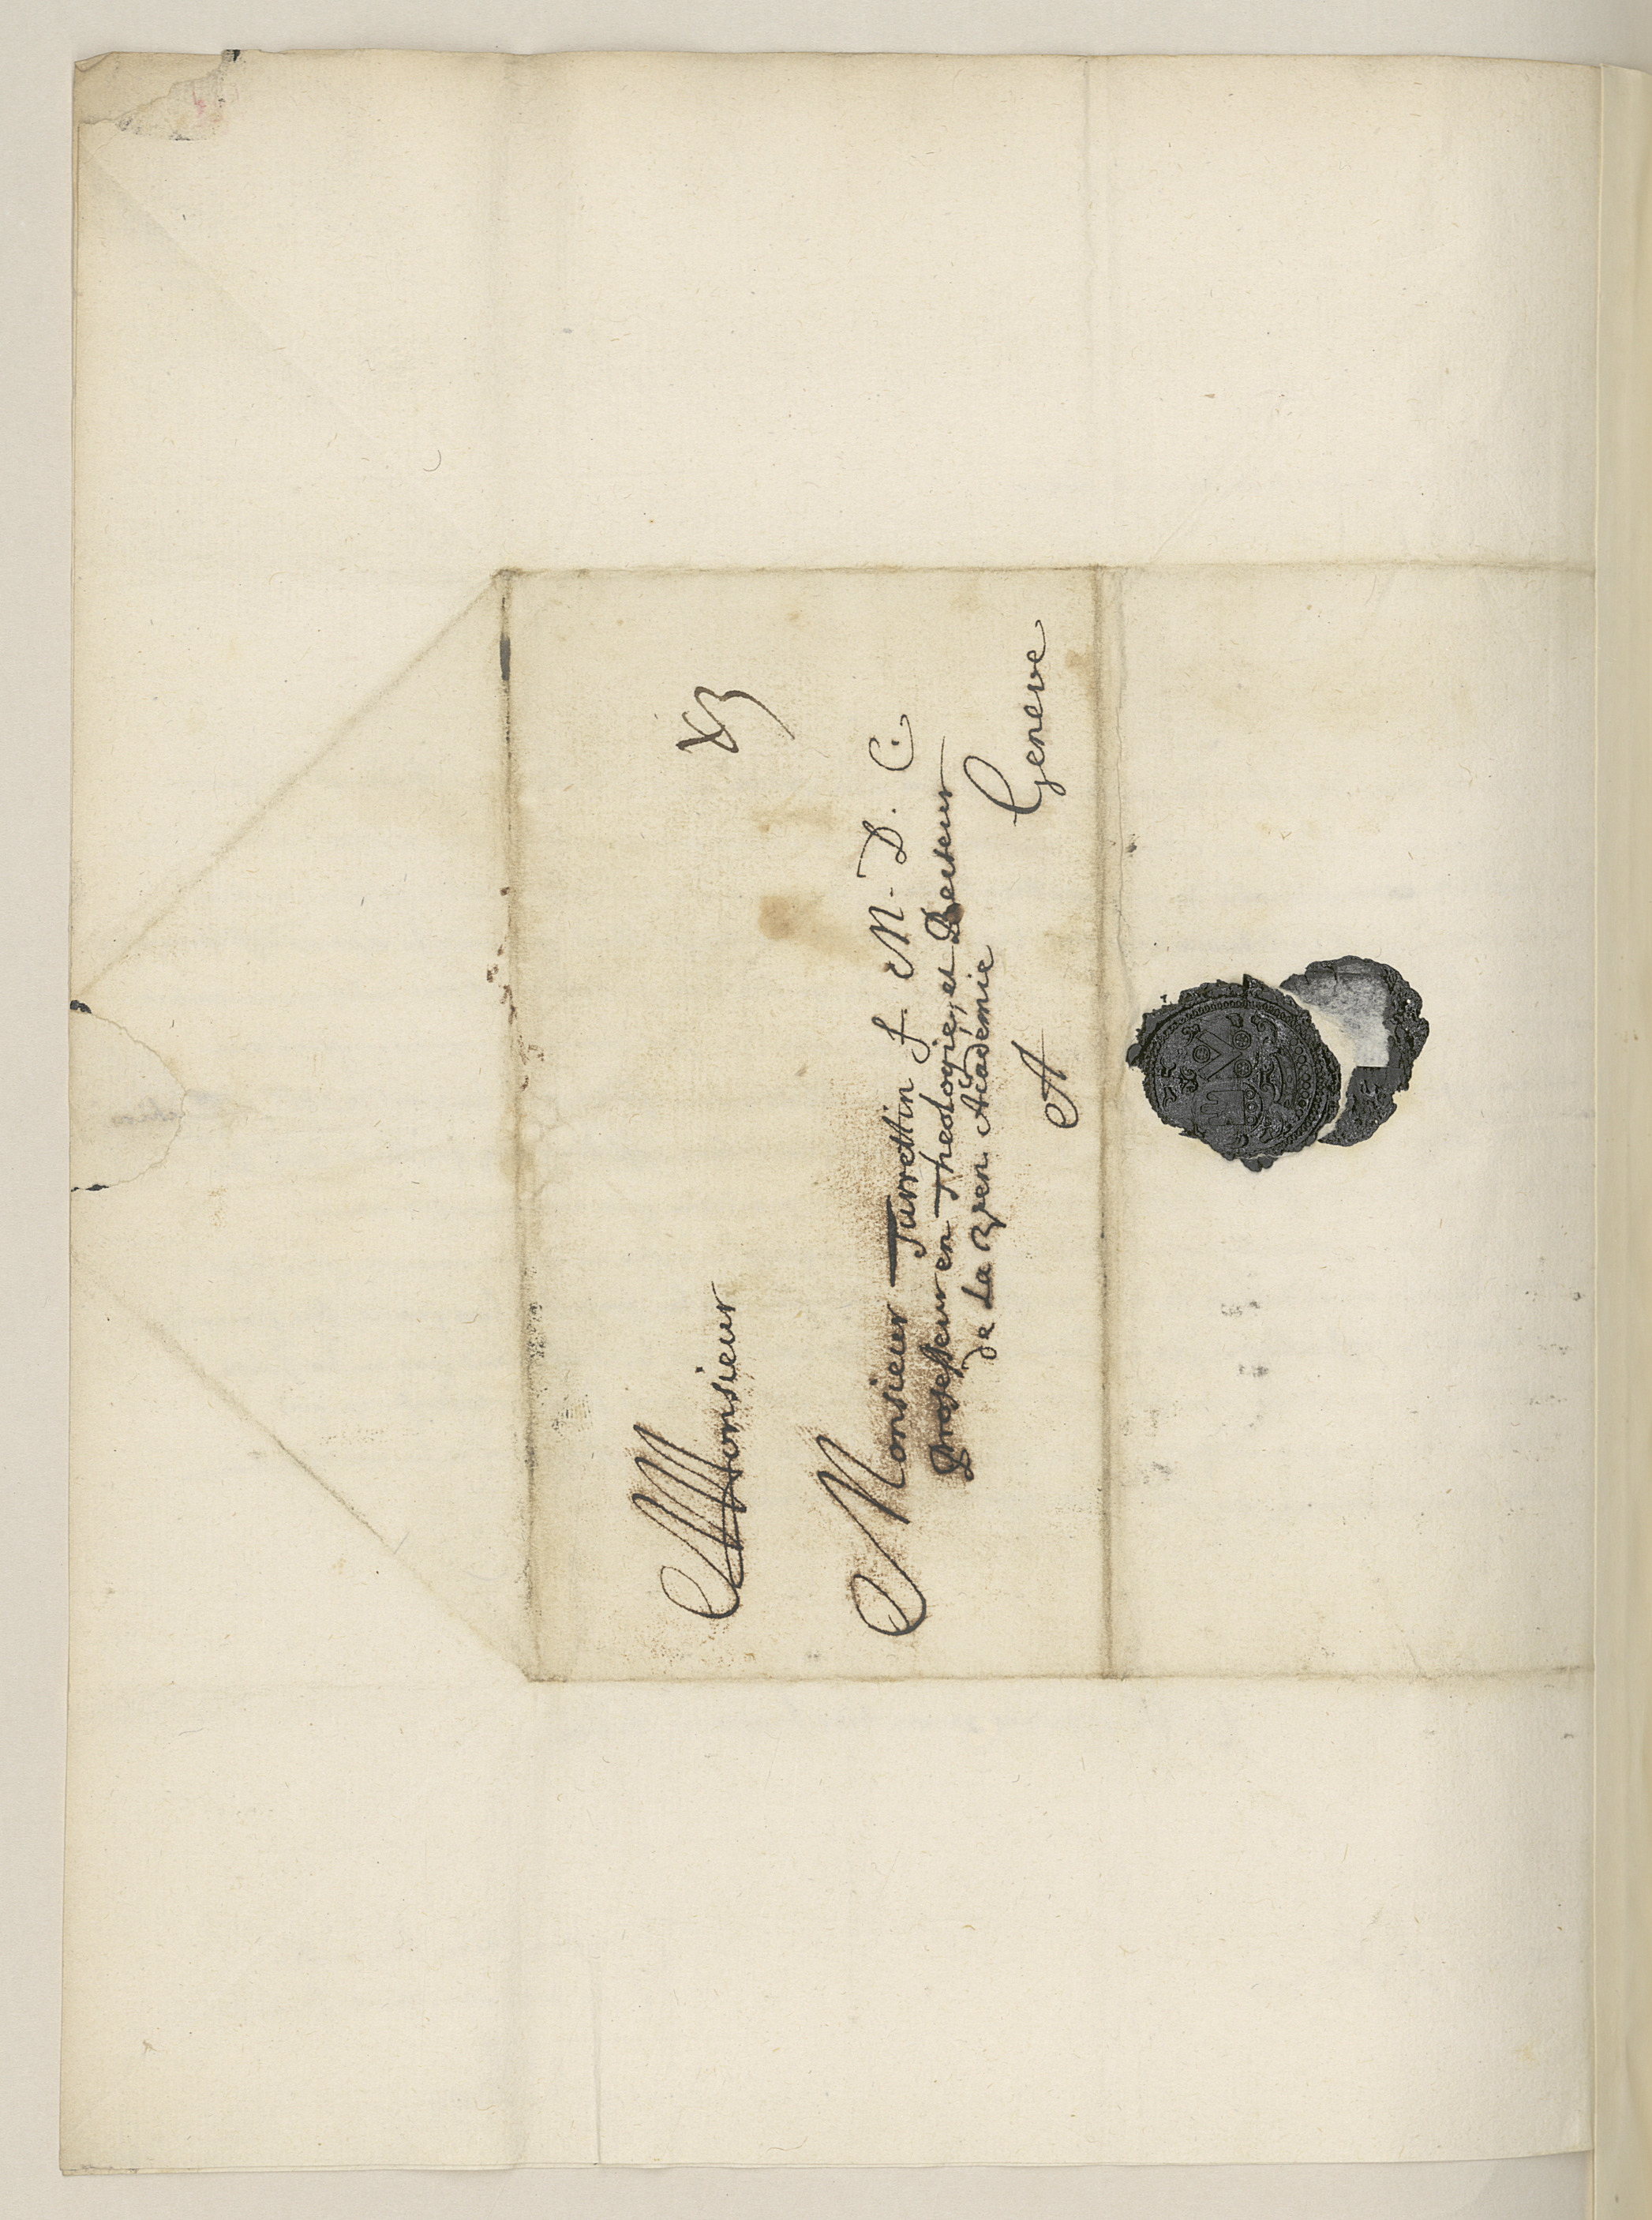 Monsieur
Monsieur Turrettin f. M. D. C.
Professeur en Theologie, et Recteur
de La Ven. Academie
A Geneve